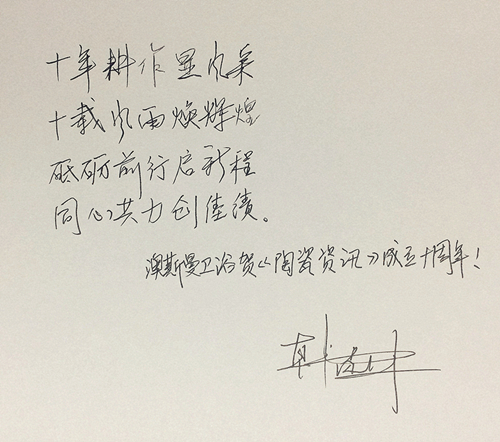 十年耕作显风采
十载风雨焕辉煌
砥砺前行启新程
同心共力创佳绩。
澳斯曼卫浴贺《陶瓷资讯》成立十周年！